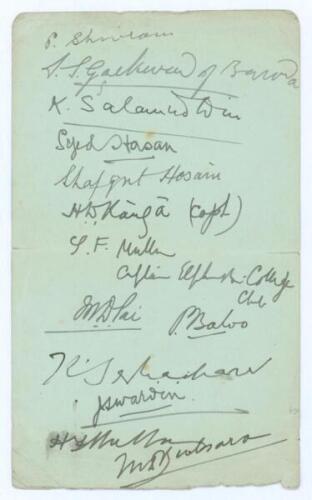 P. Shivram
S. S. Gaekwad of Baroda
K. Salamud Din
Syed Hasan
Shafqut Hosain
H D Kanga (Capt)
S. F. Mulla
Captain Elphin. College
Club
M. D. Pai
P. Baloo
J S Warden
H S Mulla